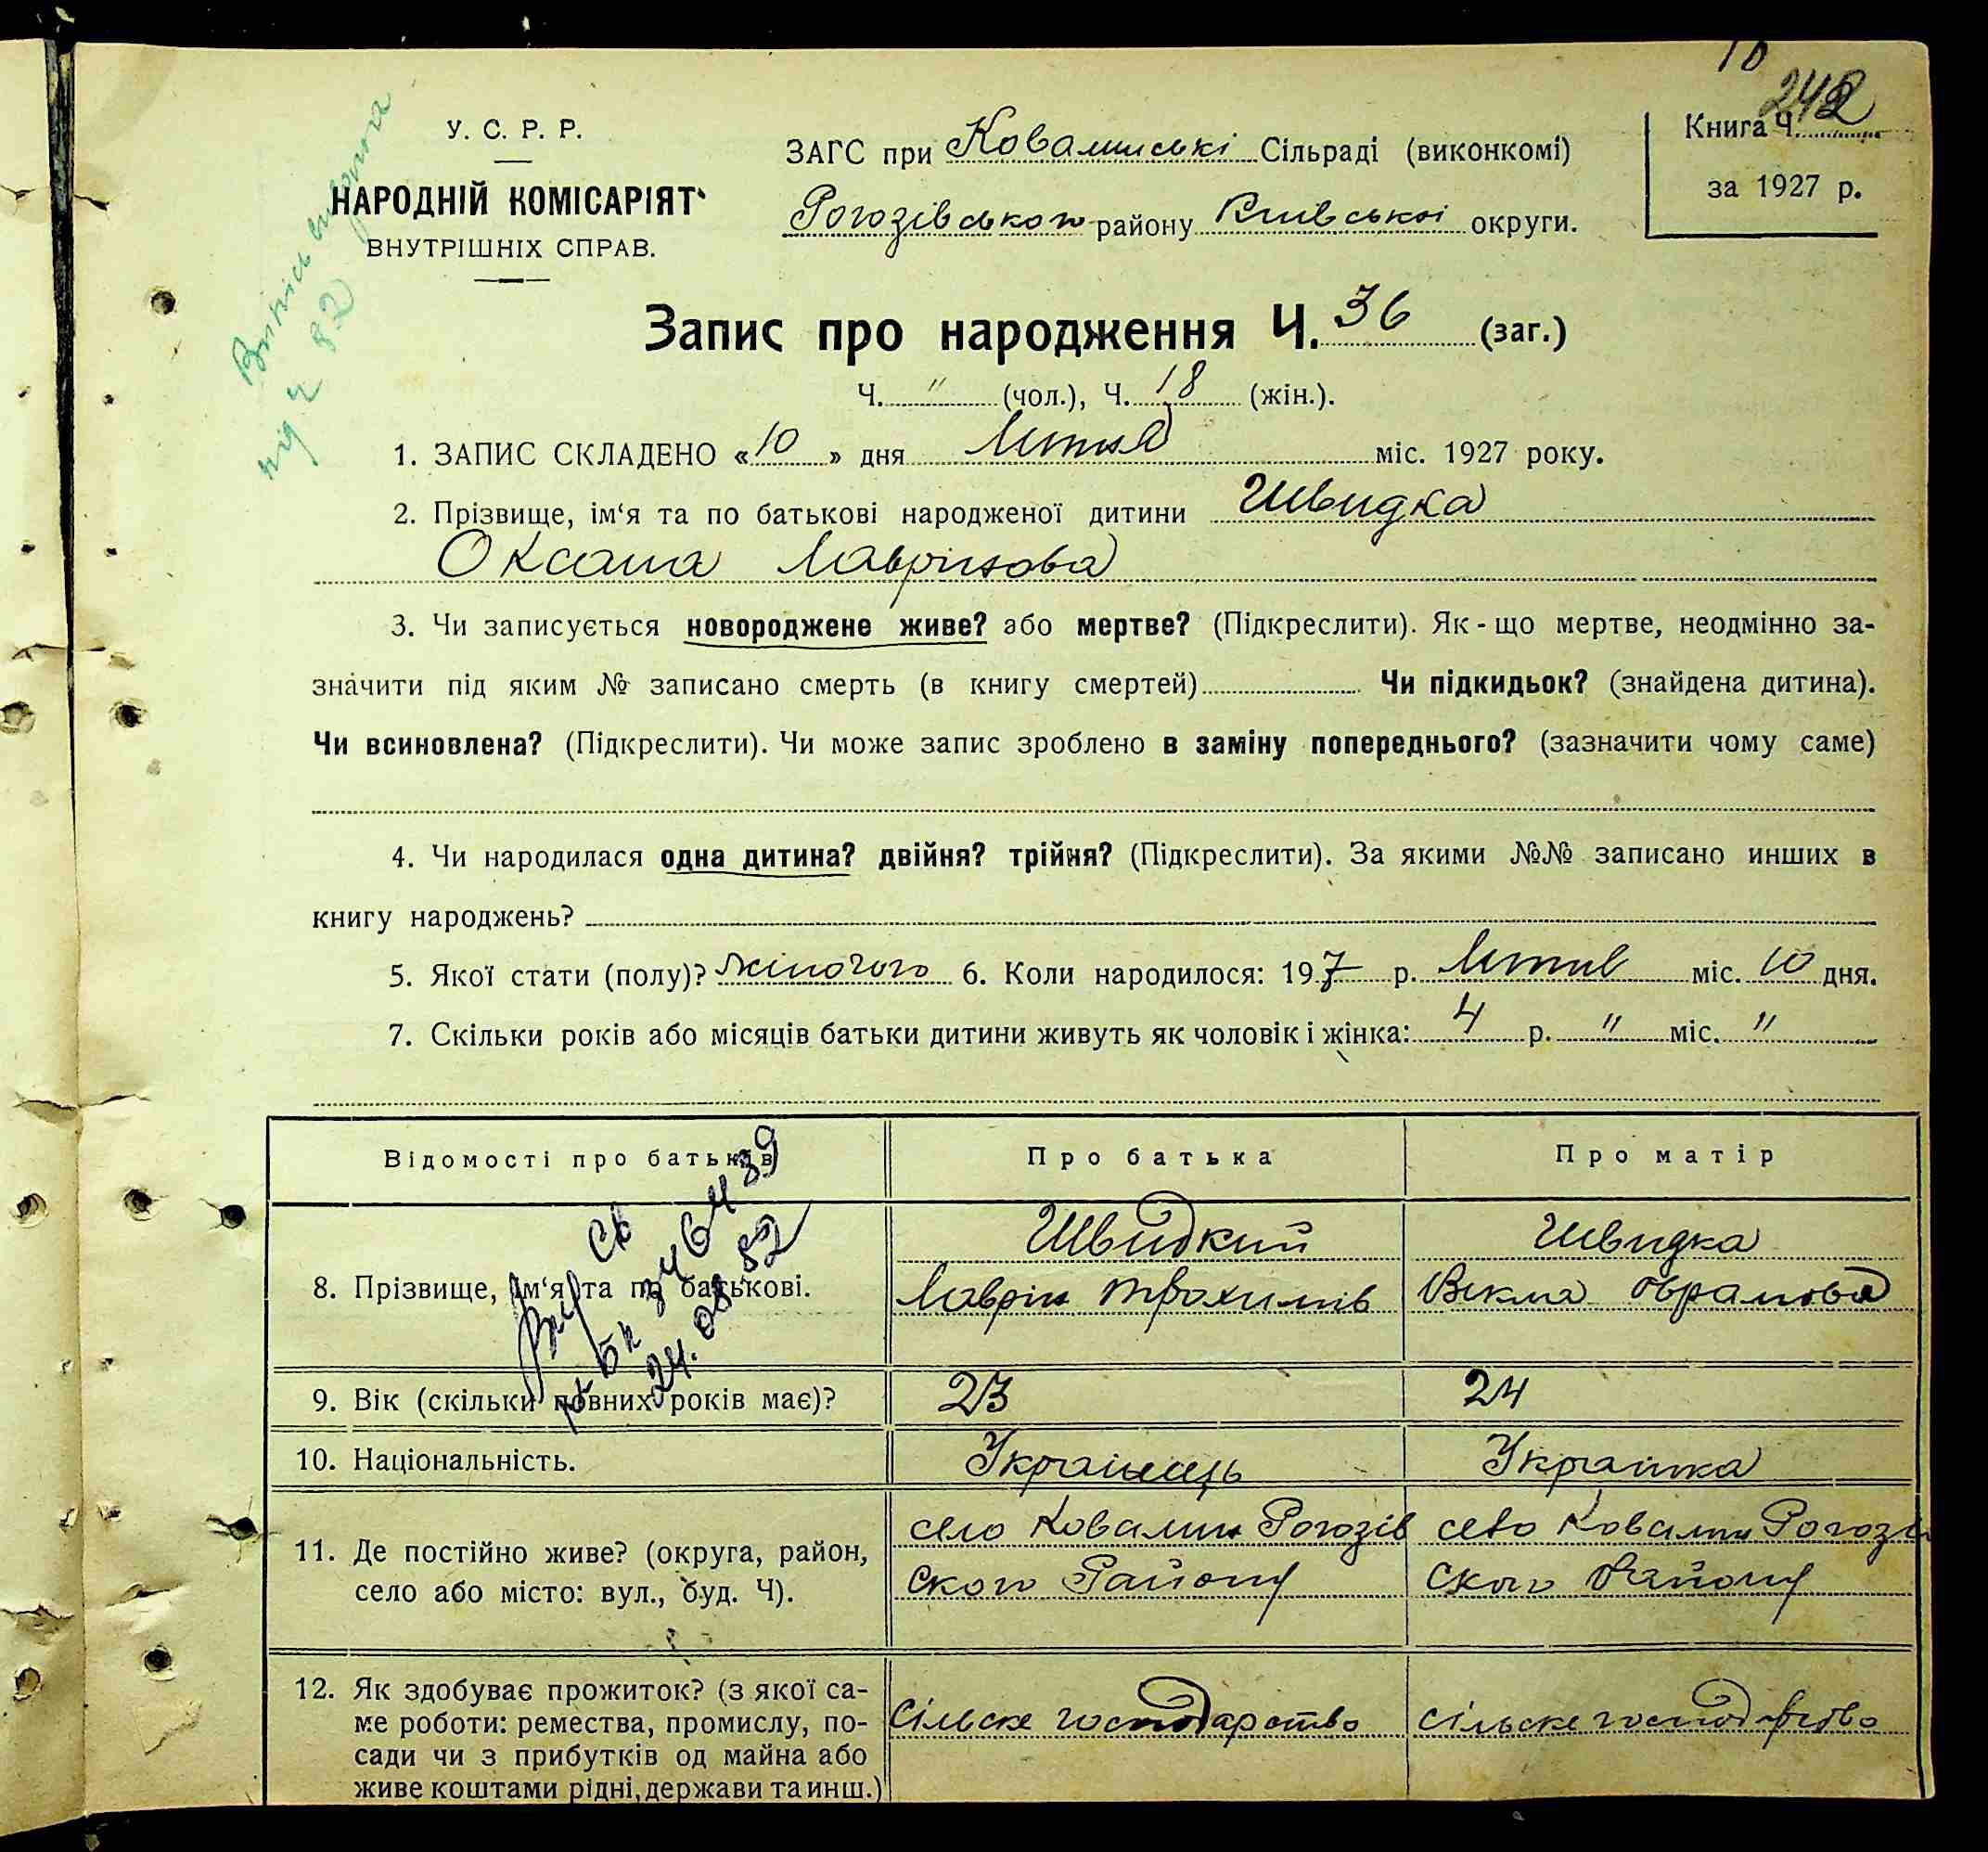 10
242
У. С. Р. Р.
НАРОДНІЙ КОМІСАРІЯТ
ВНУТРІШНІХ СПРАВ.
ЗАГС при Ковалинські Сільраді (виконкомі)
Рогозівського району Київської округи.
Книга Ч.
за 1927 р.
Запис про народження Ч. 36 (заг.)
Ч. " (чол.), Ч. 18 (жін.).
1. ЗАПИС СКЛАДЕНО «10» дня міс. 1927 року.
2. Прізвище, ім‘я та по батькові народженої дитини Швидка
Оксана Лаврінова
3. Чи записується новороджене живе? або мертве? (Підкреслити). Як-що мертве, неодмінно за-
значити під яким № записано смерть (в книгу смертей) Чи підкидьок? (знайдена дитина).
Чи всиновлена? (Підкреслити). Чи може запис зроблено в заміну попереднього? (зазначити чому саме)
4. Чи народилася одна дитина? двійня? трійня? (Підкреслити). За якими №№ записано инших в
книгу народжень?
5. Якої стати (полу)? жіночого 6. Коли народилося: 197 р. міс. 10 дня.
7. Скільки років або місяців батьки дитини живуть як чоловік і жінка: 4 р. " міс. "
Відомості про батьків Про батька Про матір
8. Прізвище, ім‘я та по батькові.
Швидкий
Лаврін Трохимів
Швидка
Векла Оврамова
24. 08 82
9. Вік (скільки повних років має)? 23 24
10. Національність. Українець Українка
11. Де постійно живе? (округа, район,
село або місто: вул., буд. Ч).
село Ковалин Рогозів
ского Району
село Ковалин Рогозів
ского Району
12. Як здобуває прожиток? (з якої са-
ме роботи: ремества, промислу, по-
сади чи з прибутків од майна або
живе коштами рідні, держави та инш.)
Сільске господарство
сільске господарство